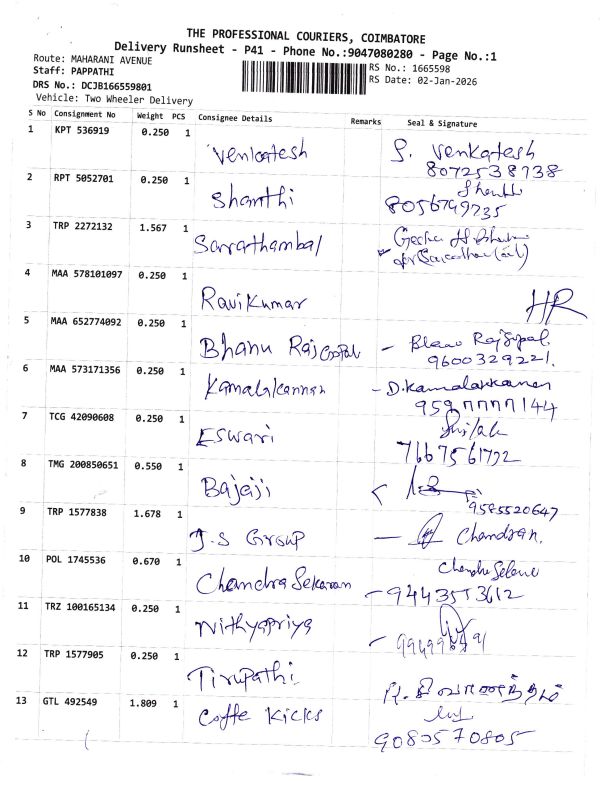 THE PROFESSIONAL COURIERS, COIMBATORE
Delivery Runsheet - P41 - Phone No.:9047080280 - Page No.:1
Route: MAHARANI AVENUE
Staff: PAPPATHI
DRS No.: DCJB166559801
Vehicle: Two Wheeler Delivery
RS No.: 1665598
RS Date: 02-Jan-2026
S No Consignment No Weight PCS Consignee Details Remarks Seal & Signature
1 KPT 536919 0.250 1 Venkatesh S. Venkatesh
8072538738
2 RPT 5052701 0.250 1 Shanthi Shanthi
8056749735
3 TRP 2272132 1.567 1 Sarrathambal Geetha
for
4 MAA 578101097 0.250 1 Ravikumar HR
5 MAA 652774092 0.250 1 Bhanu Raj Gopal - Rajgopal
9600329221.
6 MAA 573171356 0.250 1 Kamalakannan - D.Kamalakkannan
9597777144
7 TCG 42090608 0.250 1 Eswari
7667561792
8 TMG 200850651 0.550 1 Bajaji
9585520647
9 TRP 1577838 1.678 1 J.S Group - Chandran.
10 POL 1745536 0.670 1 Chandra Sekaran
- 9443553612
11 TRZ 100165134 0.250 1 Nithyapriya
12 TRP 1577905 0.250 1 Tirupathi
13 GTL 492549 1.809 1 Coffe Kicks
9080570805